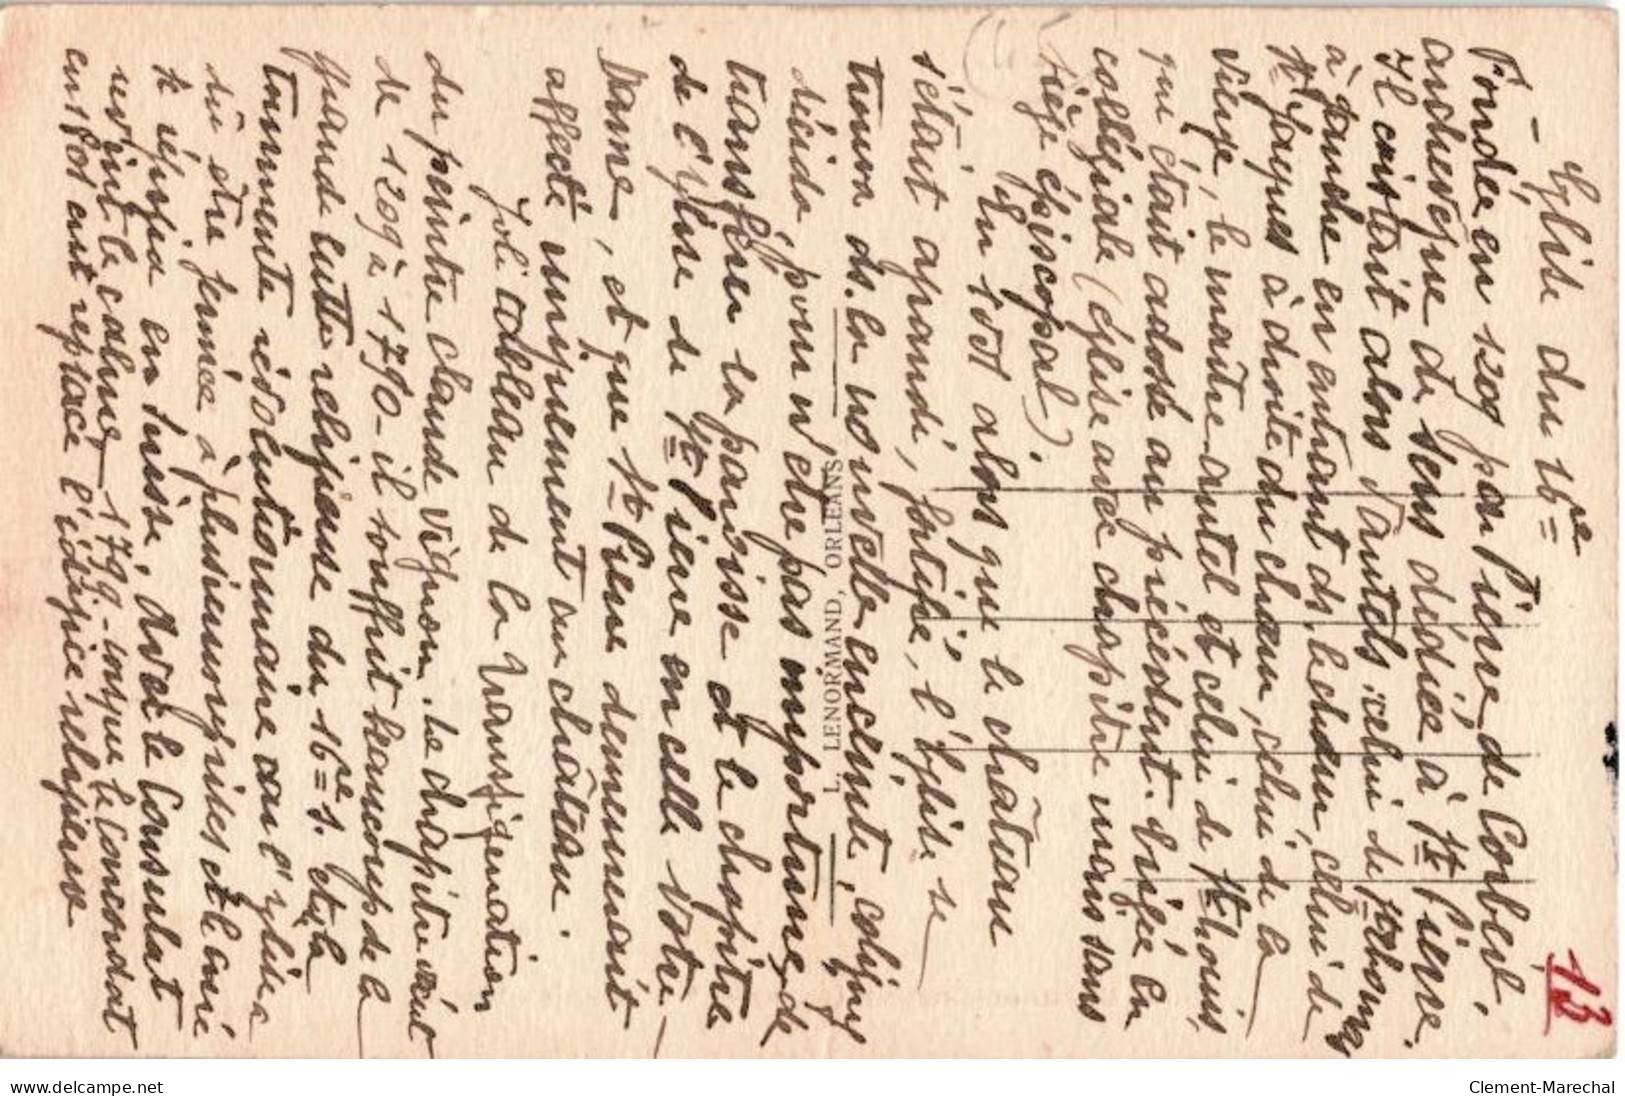 Eglise du 16e
Fondée en 1209 par Pierre de Corbeil,
archevêque de Sens dédiée à St Pierre.
Il existait alors 5 autels : celui de St Thomas
à gauche en entrant ds. le chœur, celui de
St Jacques à droite du chœur, celui de la
Vierge, le maître-autel et celui de St Louis,
qui était adossé au précédent. Erigée en
collégiale (Eglise avec chapitre mais sans
siège épiscopal).
En 1551 alors que le château
s'était agrandi, fortifié, l'Eglise se
trouva ds. la nouvelle enceinte, Coligny
décida, pour n'être pas importuné, de
transférer la paroisse et le chapitre
de l'Eglise de St Pierre en celle Notre-
Dame, et que St Pierre demeurerait
affecté uniquement au château.
Joli tableau de la Transfiguration
du peintre Claude Vignon. Le chapitre vécut
de 1209 à 1790 - il souffrit beaucoup de la
grande lutte religieuse du 16e s. et à la
tourmente révolutionnaire où l'Eglise a
dû être fermée à plusieurs reprises et le curé
se réfugia en Suisse. Avec le Consulat
revint le calme - 1799 - jusqu'au Concordat
en 1801 est replacé l'édifice religieux
L. LENORMAND, ORLEANS
13
www.delcampe.net
Clement-Marechal